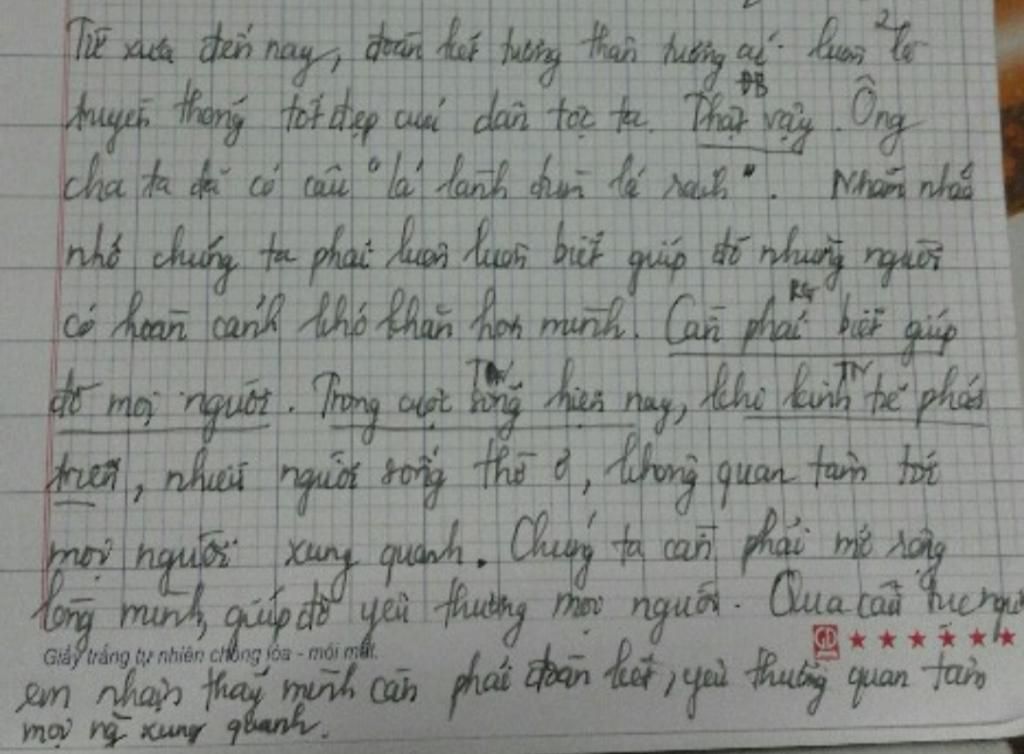 Từ xưa đến nay, đoàn kết tương thân tương ái luôn là
2
truyền thống tốt đẹp của dân tộc ta. Thật vậy. Ông
ĐB
cha ta đã có câu "lá lành đùm lá rách". Nhằm nhắc
nhở chúng ta phải luôn luôn biết giúp đỡ những người
có hoàn cảnh khó khăn hơn mình. Cần phải biết giúp
RG
đỡ mọi người. Trong cuộc sống hiện nay, khi kinh tế phát
TN
TN
triển, nhiều người sống thờ ơ, không quan tâm tới
mọi người xung quanh. Chúng ta cần phải mở rộng
lòng mình, giúp đỡ yêu thương mọi người. Qua câu tục ngữ
Giấy trắng tự nhiên chống lóa - mỏi mắt.
GD ★ ★ ★ ★ ★ ★
em nhận thấy mình cần phải đoàn kết, yêu thương quan tâm
mọi ng xung quanh.